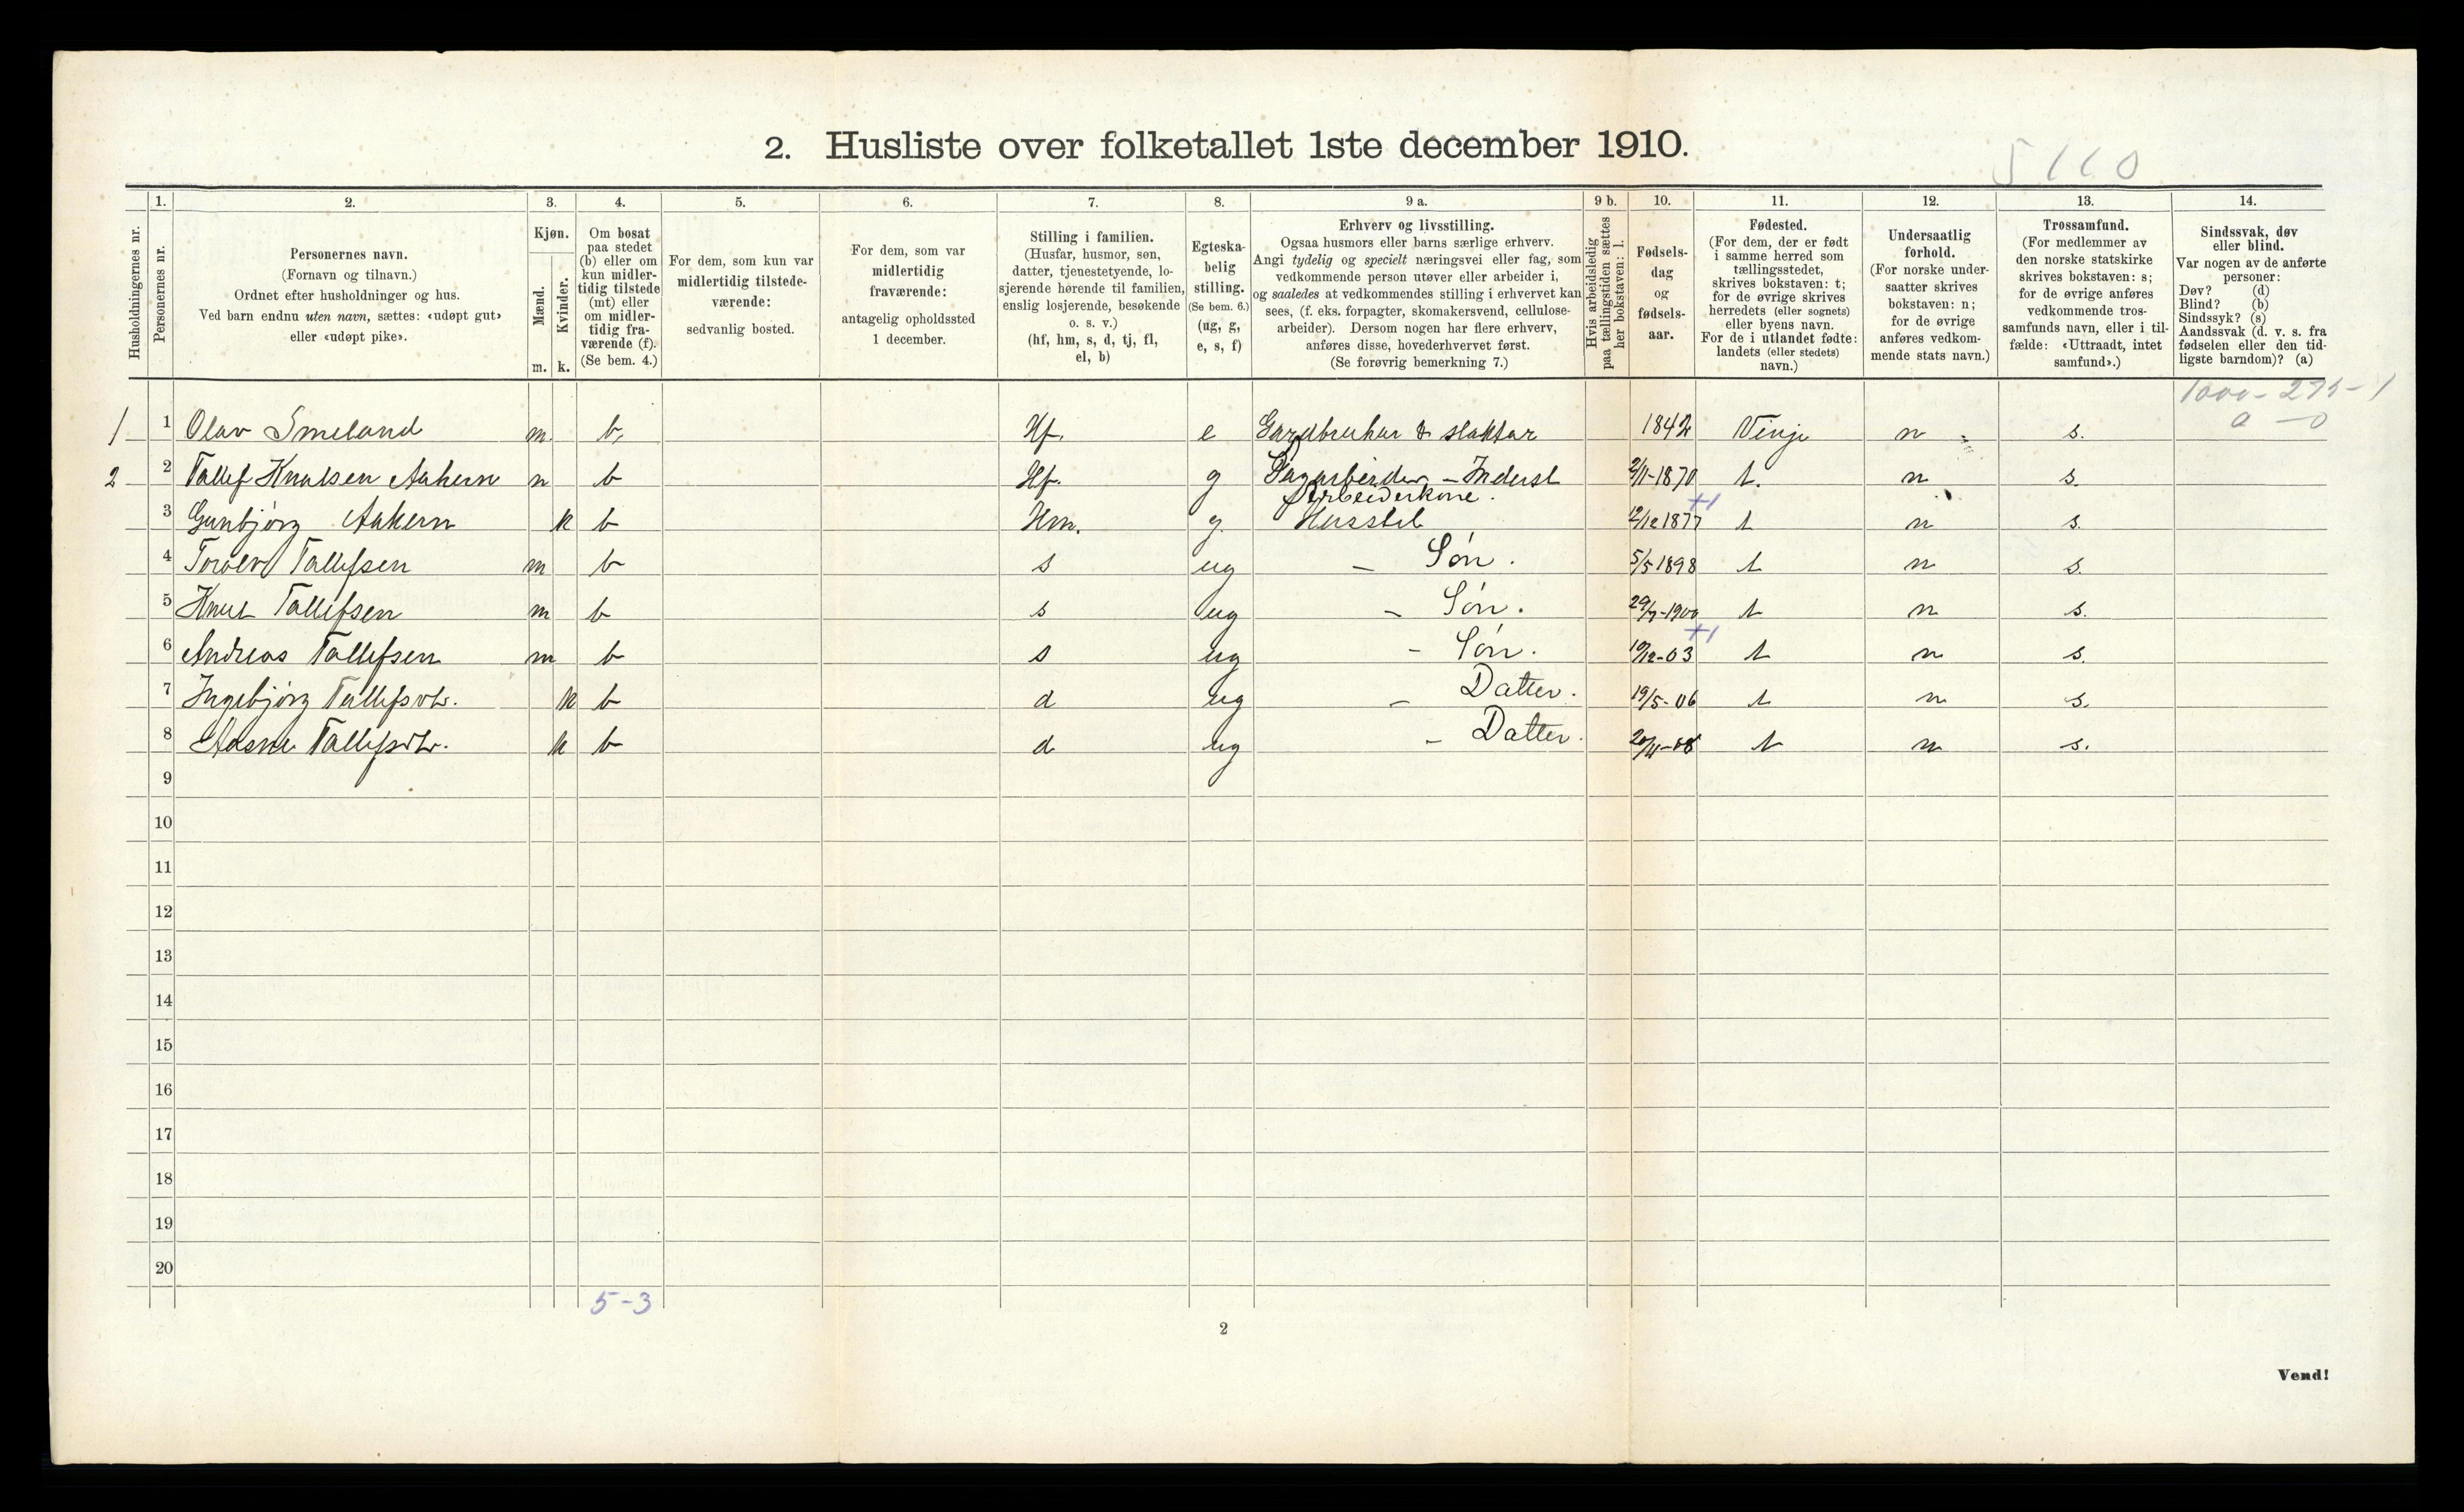 2. Husliste over folketallet 1ste december 1910.
5110
Husholdningernes nr.
1. 2. 3. 4. 5. 6. 7. 8. 9 a. 9 b. 10. 11. 12. 13. 14.
Personernes nr.
Personernes navn.
(Fornavn og tilnavn.)
Ordnet efter husholdninger og hus.
Ved barn endnu uten navn, sættes: «udøpt gut»
eller «udøpt pike».
Kjøn.
Mænd.
Kvinder.
m. k.
Om bosat
paa stedet
(b) eller om
kun midler-
tidig tilstede
(mt) eller
om midler-
tidig fra-
værende (f).
(Se bem. 4.)
For dem, som kun var
midlertidig tilstede-
værende:
sedvanlig bosted.
For dem, som var
midlertidig
fraværende:
antagelig opholdssted
1 december.
Stilling i familien.
(Husfar, husmor, søn,
datter, tjenestetyende, lo-
sjerende hørende til familien,
enslig losjerende, besøkende
o. s. v.)
(hf, hm, s, d, tj, fl,
el, b)
Egteska-
belig
stilling.
(Se bem. 6.)
(ug, g,
e, s, f)
Erhverv og livsstilling.
Ogsaa husmors eller barns særlige erhverv.
Angi tydelig og specielt næringsvei eller fag, som
vedkommende person utøver eller arbeider i,
og saaledes at vedkommendes stilling i erhvervet kan
sees, (f. eks. forpagter, skomakersvend, cellulose-
arbeider). Dersom nogen har flere erhverv,
anføres disse, hovederhvervet først.
(Se forøvrig bemerkning 7.)
Hvis arbeidsledig
paa tællingstiden sættes
her bokstaven: l.
Fødsels-
dag
og
fødsels-
aar.
Fødested.
(For dem, der er født
i samme herred som
tællingsstedet,
skrives bokstaven: t;
for de øvrige skrives
herredets (eller sognets)
eller byens navn.
For de i utlandet fødte:
landets (eller stedets)
navn.)
Undersaatlig
forhold.
(For norske under-
saatter skrives
bokstaven: n;
for de øvrige
anføres vedkom-
mende stats navn.)
Trossamfund.
(For medlemmer av
den norske statskirke
skrives bokstaven: s;
for de øvrige anføres
vedkommende tros-
samfunds navn, eller i til-
fælde: «Uttraadt, intet
samfund».)
Sindssvak, døv
eller blind.
Var nogen av de anførte
personer:
Døv? (d)
Blind? (b)
Sindssyk? (s)
Aandssvak (d. v. s. fra
fødselen eller den tid-
ligste barndom)? (a)
1000-275-1
0 - 0
1 1 Olav Smeland m. b. Hf. e Gardbrukar & slaktar 1842 Vinje n s.
2 2 Tallef Knutsen Aakern m b Hf. g Dagarbeider - Inderst 2/11-1870 t. n s.
Arbeiderkone. +1
3 Gunbjörg Aakern k b Hm. g. Husstel 12/12 1877 t n s.
4 Torolv Tallefsen m b s ug - Søn. 5/5 1898 t n s.
5 Knut Tallefsen m b s ug - Søn. 29/7-1900 t n s.
+1
6 Andreas Tallefsen m b s ug - Søn. 19/12-03 t n s.
7 Ingebjörg Tallefsdtr. k b d ug - Datter. 19/5-06 t n s.
8 Aasne Tallefsdtr. k b d ug - Datter. 20/11-08 t n s.
9
10
11
12
13
14
15
16
17
18
19
20
5-3
2
Vend!